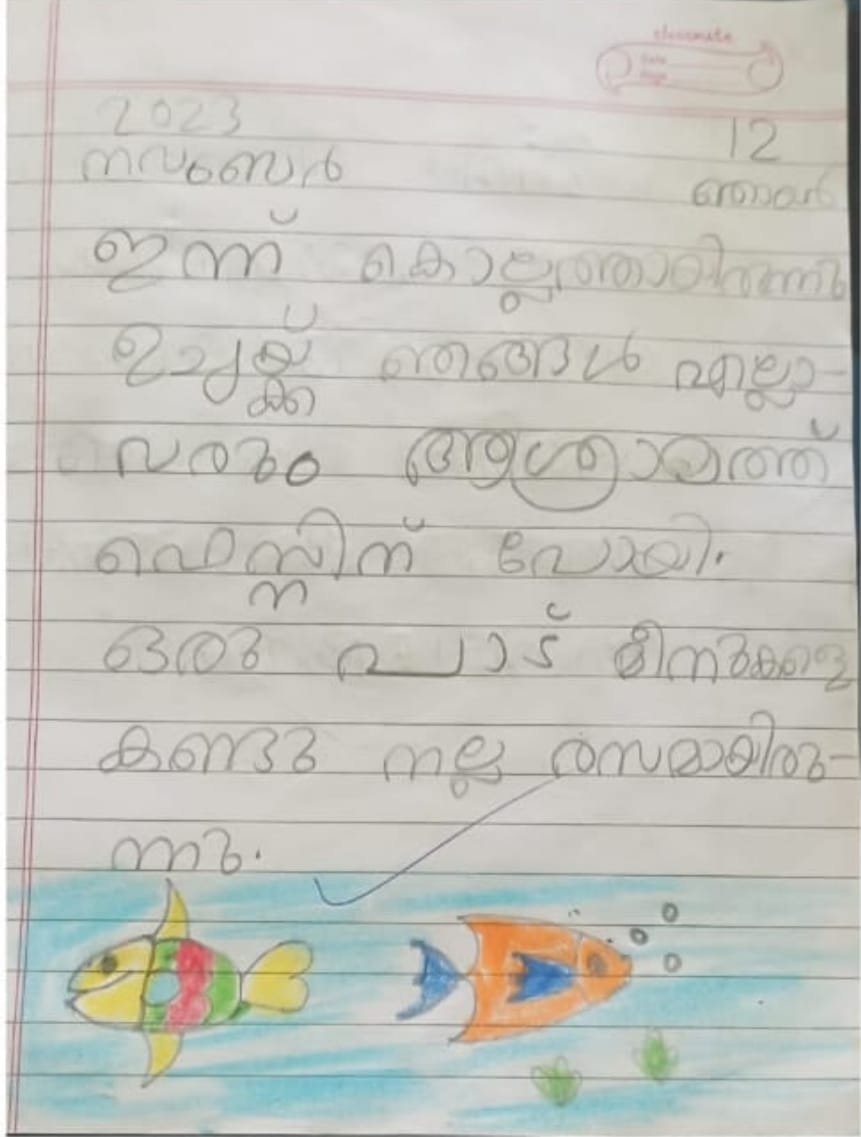 classmate
Date
Page
2023 12
നവംബർ ഞായർ
ഇന്ന് കൊല്ലത്തായിരുന്നു
ഉച്ചയ്ക്ക് ഞങ്ങൾ എല്ലാ-
വരും ആശ്രാമത്ത്
ഫെസ്റ്റിന് പോയി.
ഒരു പാട് മീനുകളെ
കണ്ടു നല്ല രസമായിരു-
ന്നു.